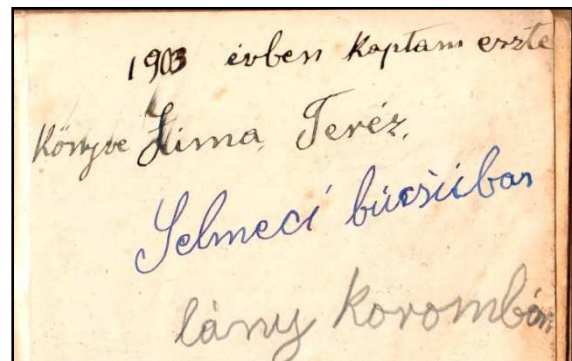 1903 évben Kaptam eszte
Könyve Sima Teréz,
Selmeci búcsúban
lány koromban